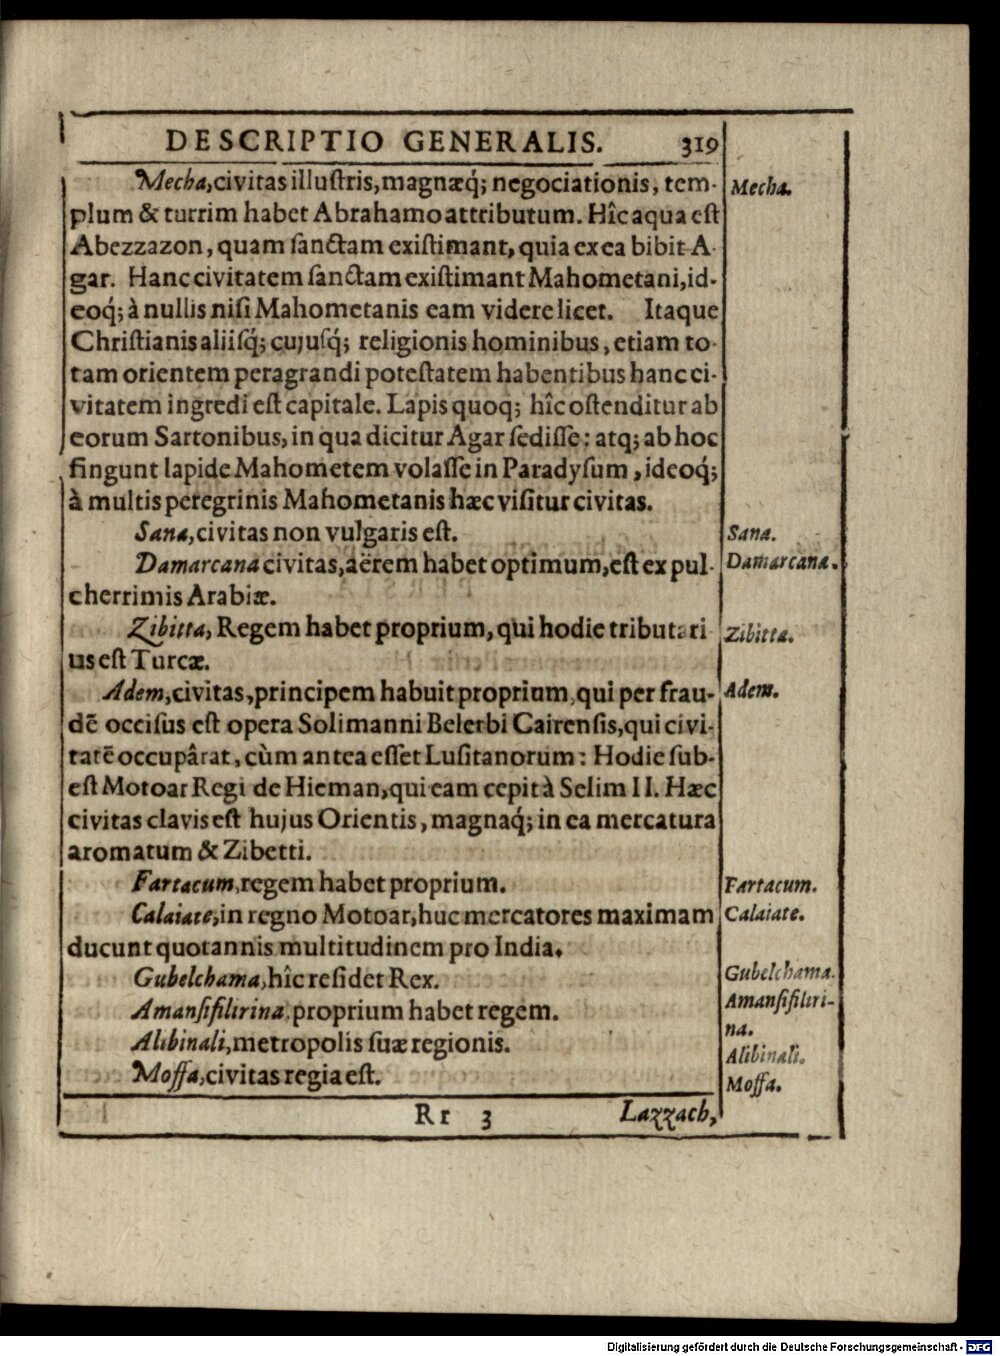 DESCRIPTIO GENERALIS. 319
Mecha, civitas illustris, magnæq́; negociationis, tem- Mecha.
plum & turrim habet Abrahamo attributum. Hîc aqua est
Abezzazon, quam sanctam existimant, quia ex ea bibit A-
gar. Hanc civitatem sanctam existimant Mahometani, id-
eoq́; à nullis nisi Mahometanis eam videre licet. Itaque
Christianis aliisq́; cujusq́; religionis hominibus, etiam to-
tam orientem peragrandi potestatem habentibus hanc ci-
vitatem ingredi est capitale. Lapis quoq; hîc ostenditur ab
eorum Sartonibus, in qua dicitur Agar sedisse: atq; ab hoc
fingunt lapide Mahometem volasse in Paradysum, ideoq́;
à multis peregrinis Mahometanis hæc visitur civitas.
Sana, civitas non vulgaris est. Sana.
Damarcana civitas, aërem habet optimum, est ex pul- Damarcana.
cherrimis Arabiæ.
Zibitta, Regem habet proprium, qui hodie tributari Zibitta.
us est Turcæ.
Adem, civitas, principem habuit proprium, qui per frau- Adem.
dē occisus est opera Solimanni Belerbi Cairensis, qui civi-
tatē occupârat, cùm antea esset Lusitanorum: Hodie sub-
est Motoar Regi de Hieman, qui eam cepit à Selim II. Hæc
civitas clavis est hujus Orientis, magnaq́; in ea mercatura
aromatum & Zibetti.
Fartacum, regem habet proprium. Fartacum.
Calaiate, in regno Motoar, huc mercatores maximam Calaiate.
ducunt quotannis multitudinem pro India.
Gubelchama, hîc residet Rex. Gubelchama.
Amansifilirina, proprium habet regem. Amansifiliri-
na.
Alibinali, metropolis suæ regionis. Alibinali.
Mossa, civitas regia est. Mossa.
Rr 3 Lazzach,
Digitalisierung gefördert durch die Deutsche Forschungsgemeinschaft - DFG